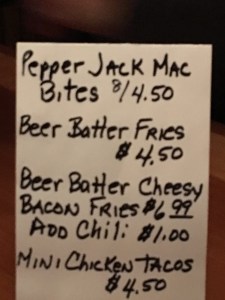 Pepper JACK MAC
Bites 8/4.50
Beer Batter FRIES
$4.50
Beer Batter Cheesy
BACON FRIES $6.99
ADD Chili: $1.00
MINI CHICKEN TACOS
$4.50